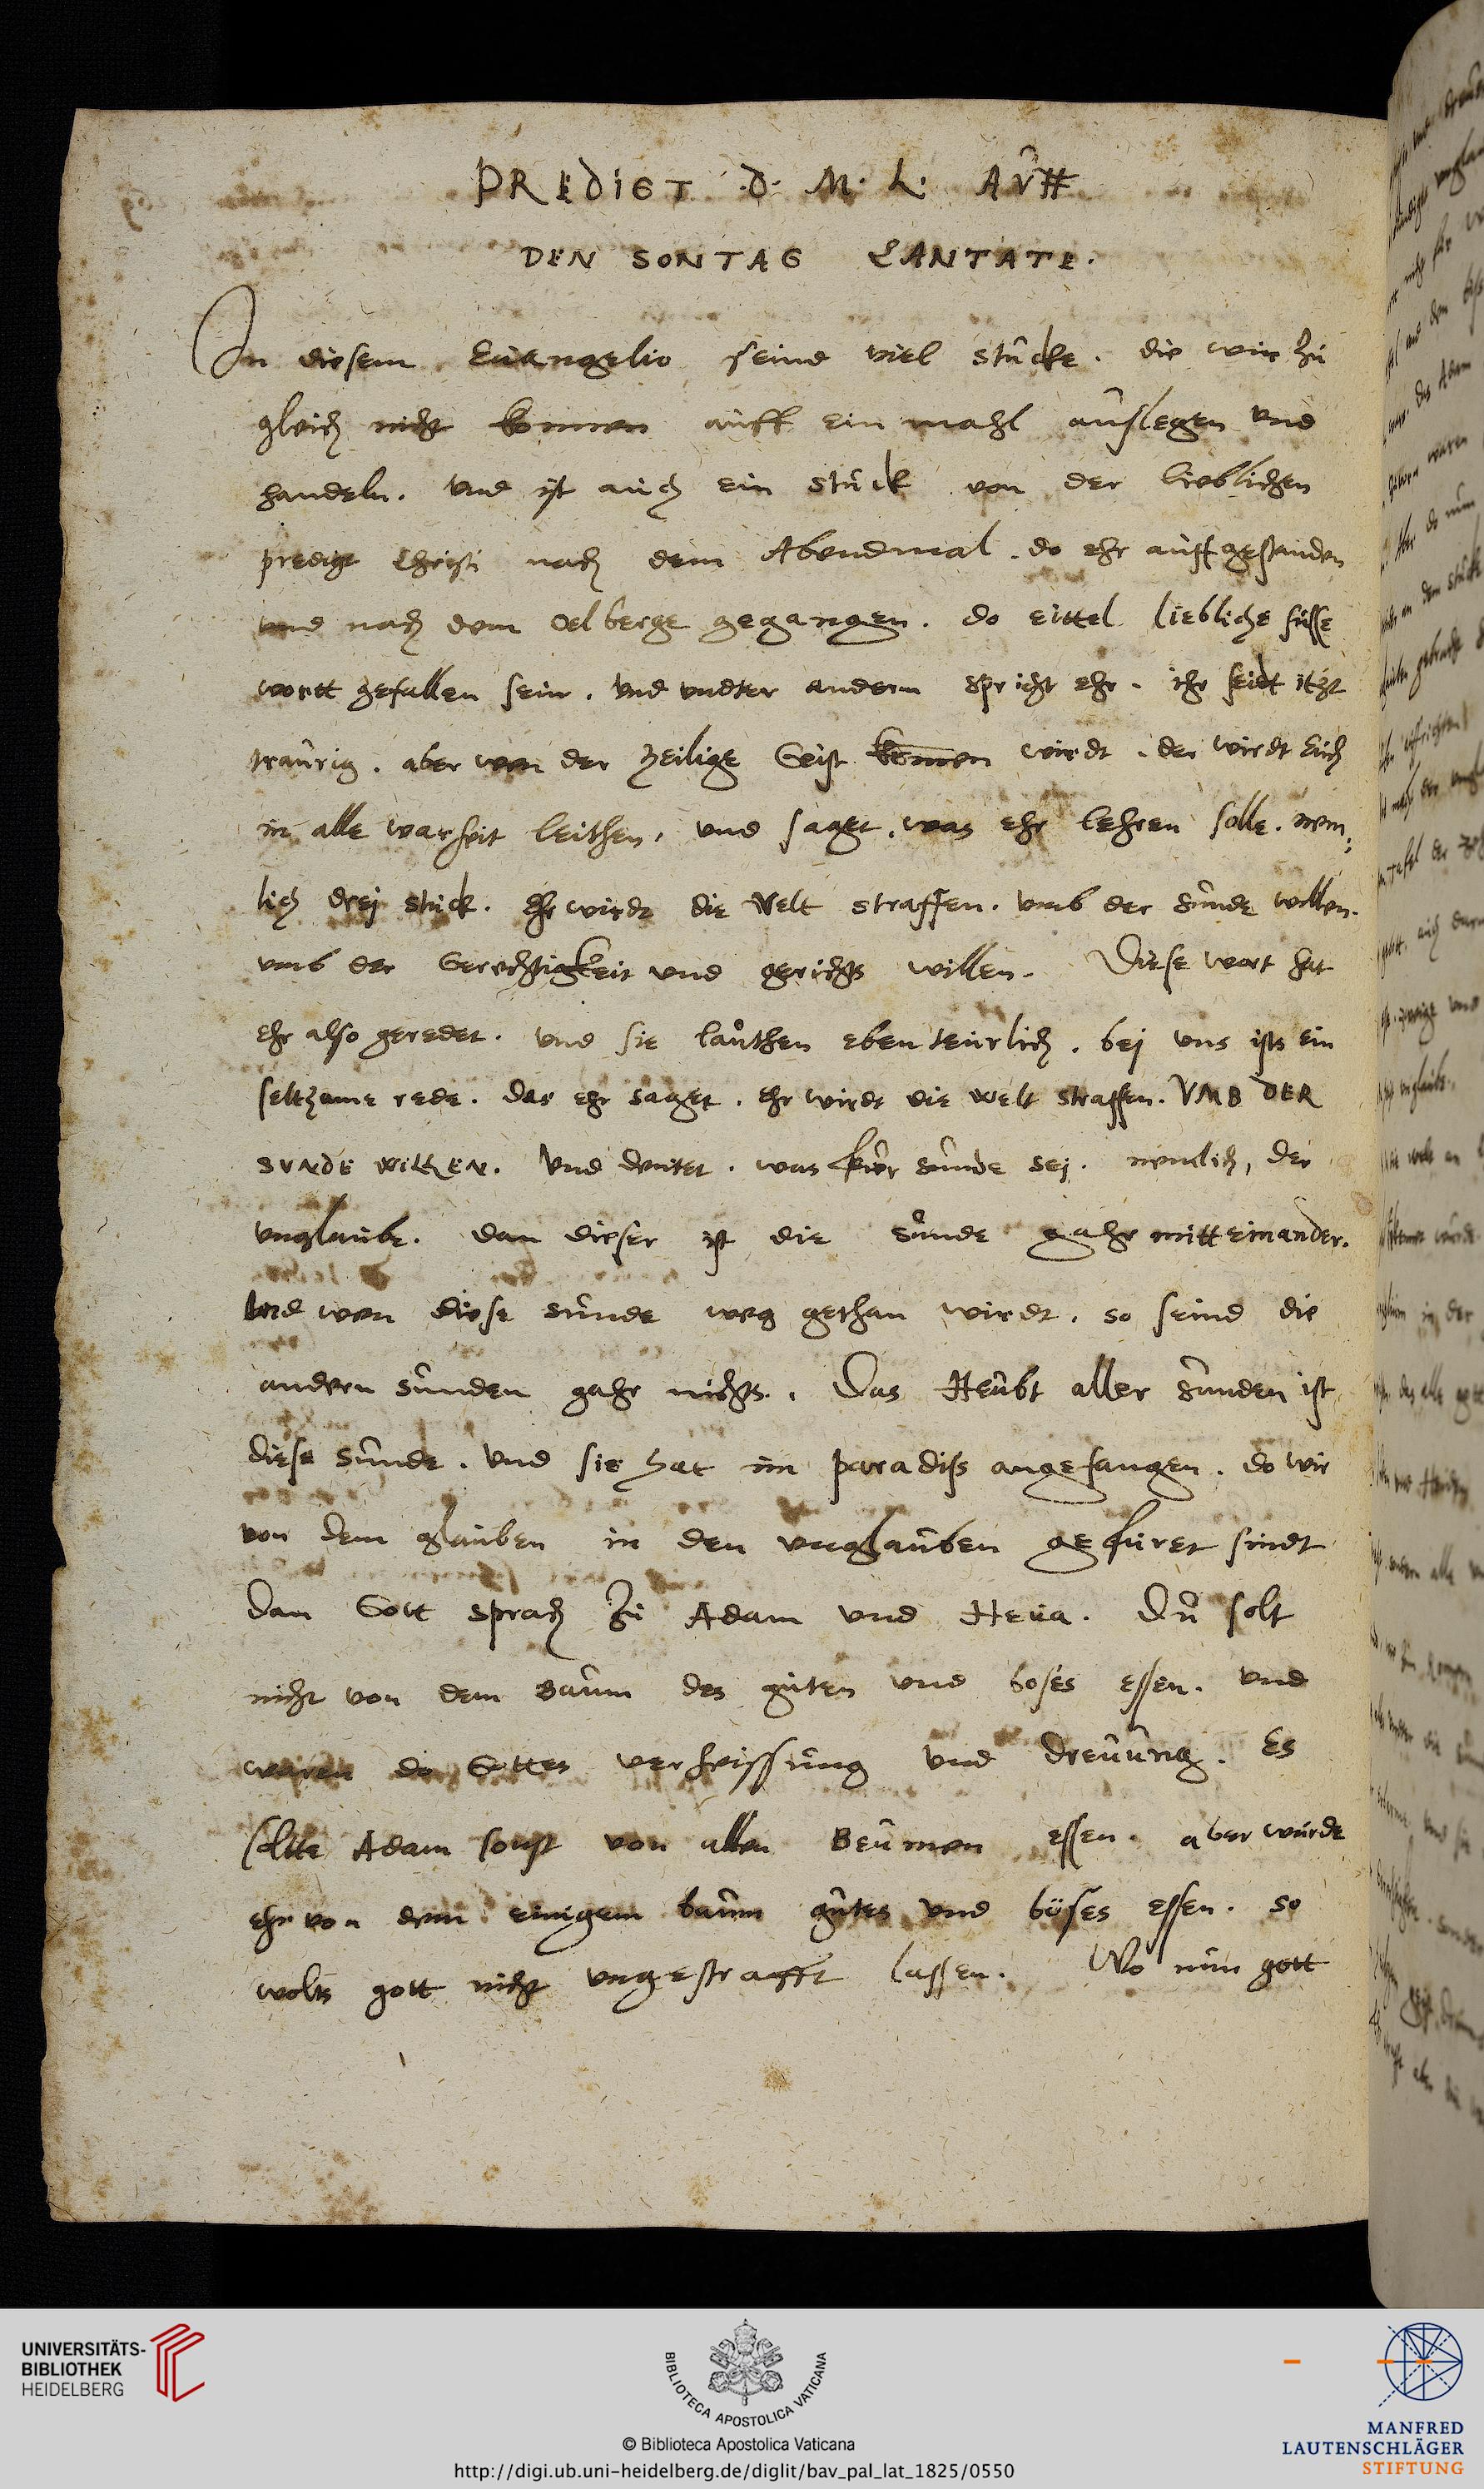 PREDIGT .D. M. L. AUFF
DEN SONTAG CANTATE.
In diesem Euangelio seind viel stucke. die wir zu
gleich nicht konnen auff ein mahl auslegen vnd
handeln. Vnd ist auch ein stuck von der lieblichen
predigt Christi nach dem Abendmal. do ehr auffgestanden
vnd nach dem Oelberge gegangen. do eittel liebliche süsse
wortt gefallen sein. Vnd vndter andern spricht ehr. ihr seidt itzt
traurig. aber wen der heilige Geist kommen wirdt. der wirdt Euch
in alle warheit leithen, vnd saget, was ehr lehren solle. nem,
lich drej stuck. Ehr wirdt die Welt straffen. vmb der sunde willen.
vmb der Gerechtigkeit vnd gerichts willen. Diese wort hat
ehr also geredet. vnd sie lauthen ebenteurlich. bej vns ists ein
seltzame rede. das ehr saget. Ehr wirdt die welt straffen. VMB DER
SVNDE WILLEN. Vnd deutet. was fur sunde sej. nemlich, der
vnglaube. dan dieser ist die sunde gahr mitteinander.
Vnd wen diese sunde weg gethan wirdt. so seind die
andern sunden gahr nichts. Das Heubt aller sunden ist
diese sunde. Vnd sie hat im paradiss angefangen. do wir
von dem glauben in den vnglauben gefuret sindt
Dan Gott sprach zu Adam vnd Heua. Du solt
nicht von dem Baum des guten vnd boses essen. vnd
waren do Gottes verheissung vnd dreuung. Es
soltte Adam sonst von allen Beumen essen. aber wurde
ehr von dem einigem baum gutes vnd böses essen. so
wolts gott nicht vngestrafft lassen. Wo nun gott
UNIVERSITÄTS-
BIBLIOTHEK
HEIDELBERG
BIBLIOTECA APOSTOLICA VATICANA
© Biblioteca Apostolica Vaticana
http://digi.ub.uni-heidelberg.de/diglit/bav_pal_lat_1825/0550
MANFRED
LAUTENSCHLÄGER
STIFTUNG